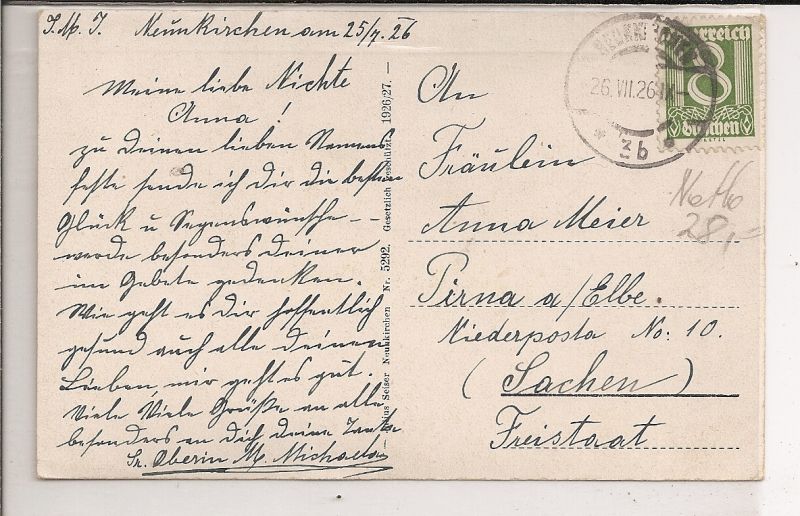 J. M. J. Neunkirchen am 25/7. 26
Meine liebe Nichte
Anna!
zu Deinen lieben Namens
feste sende ich Dir die besten
Glück u Segenswünsche –
werde besonders Deiner
im Gebete gedenken.
Wie geht es Dir hoffentlich
gesund auch alle Deinen
Lieben mir geht es gut.
Viele Viele Grüße an alle
besonders an Dich Deine Tante
Sr. Oberin M. Michaela
Seiser Neunkirchen Nr. 5292. Gesetzlich geschützt. 1926/27. —
An
Fräulein
Anna Meier
Pirna a/Elbe.
Niederposta No: 10.
(Sachen)
Freistaat
26.VII.26
* 3b *
8
Groschen
28,-